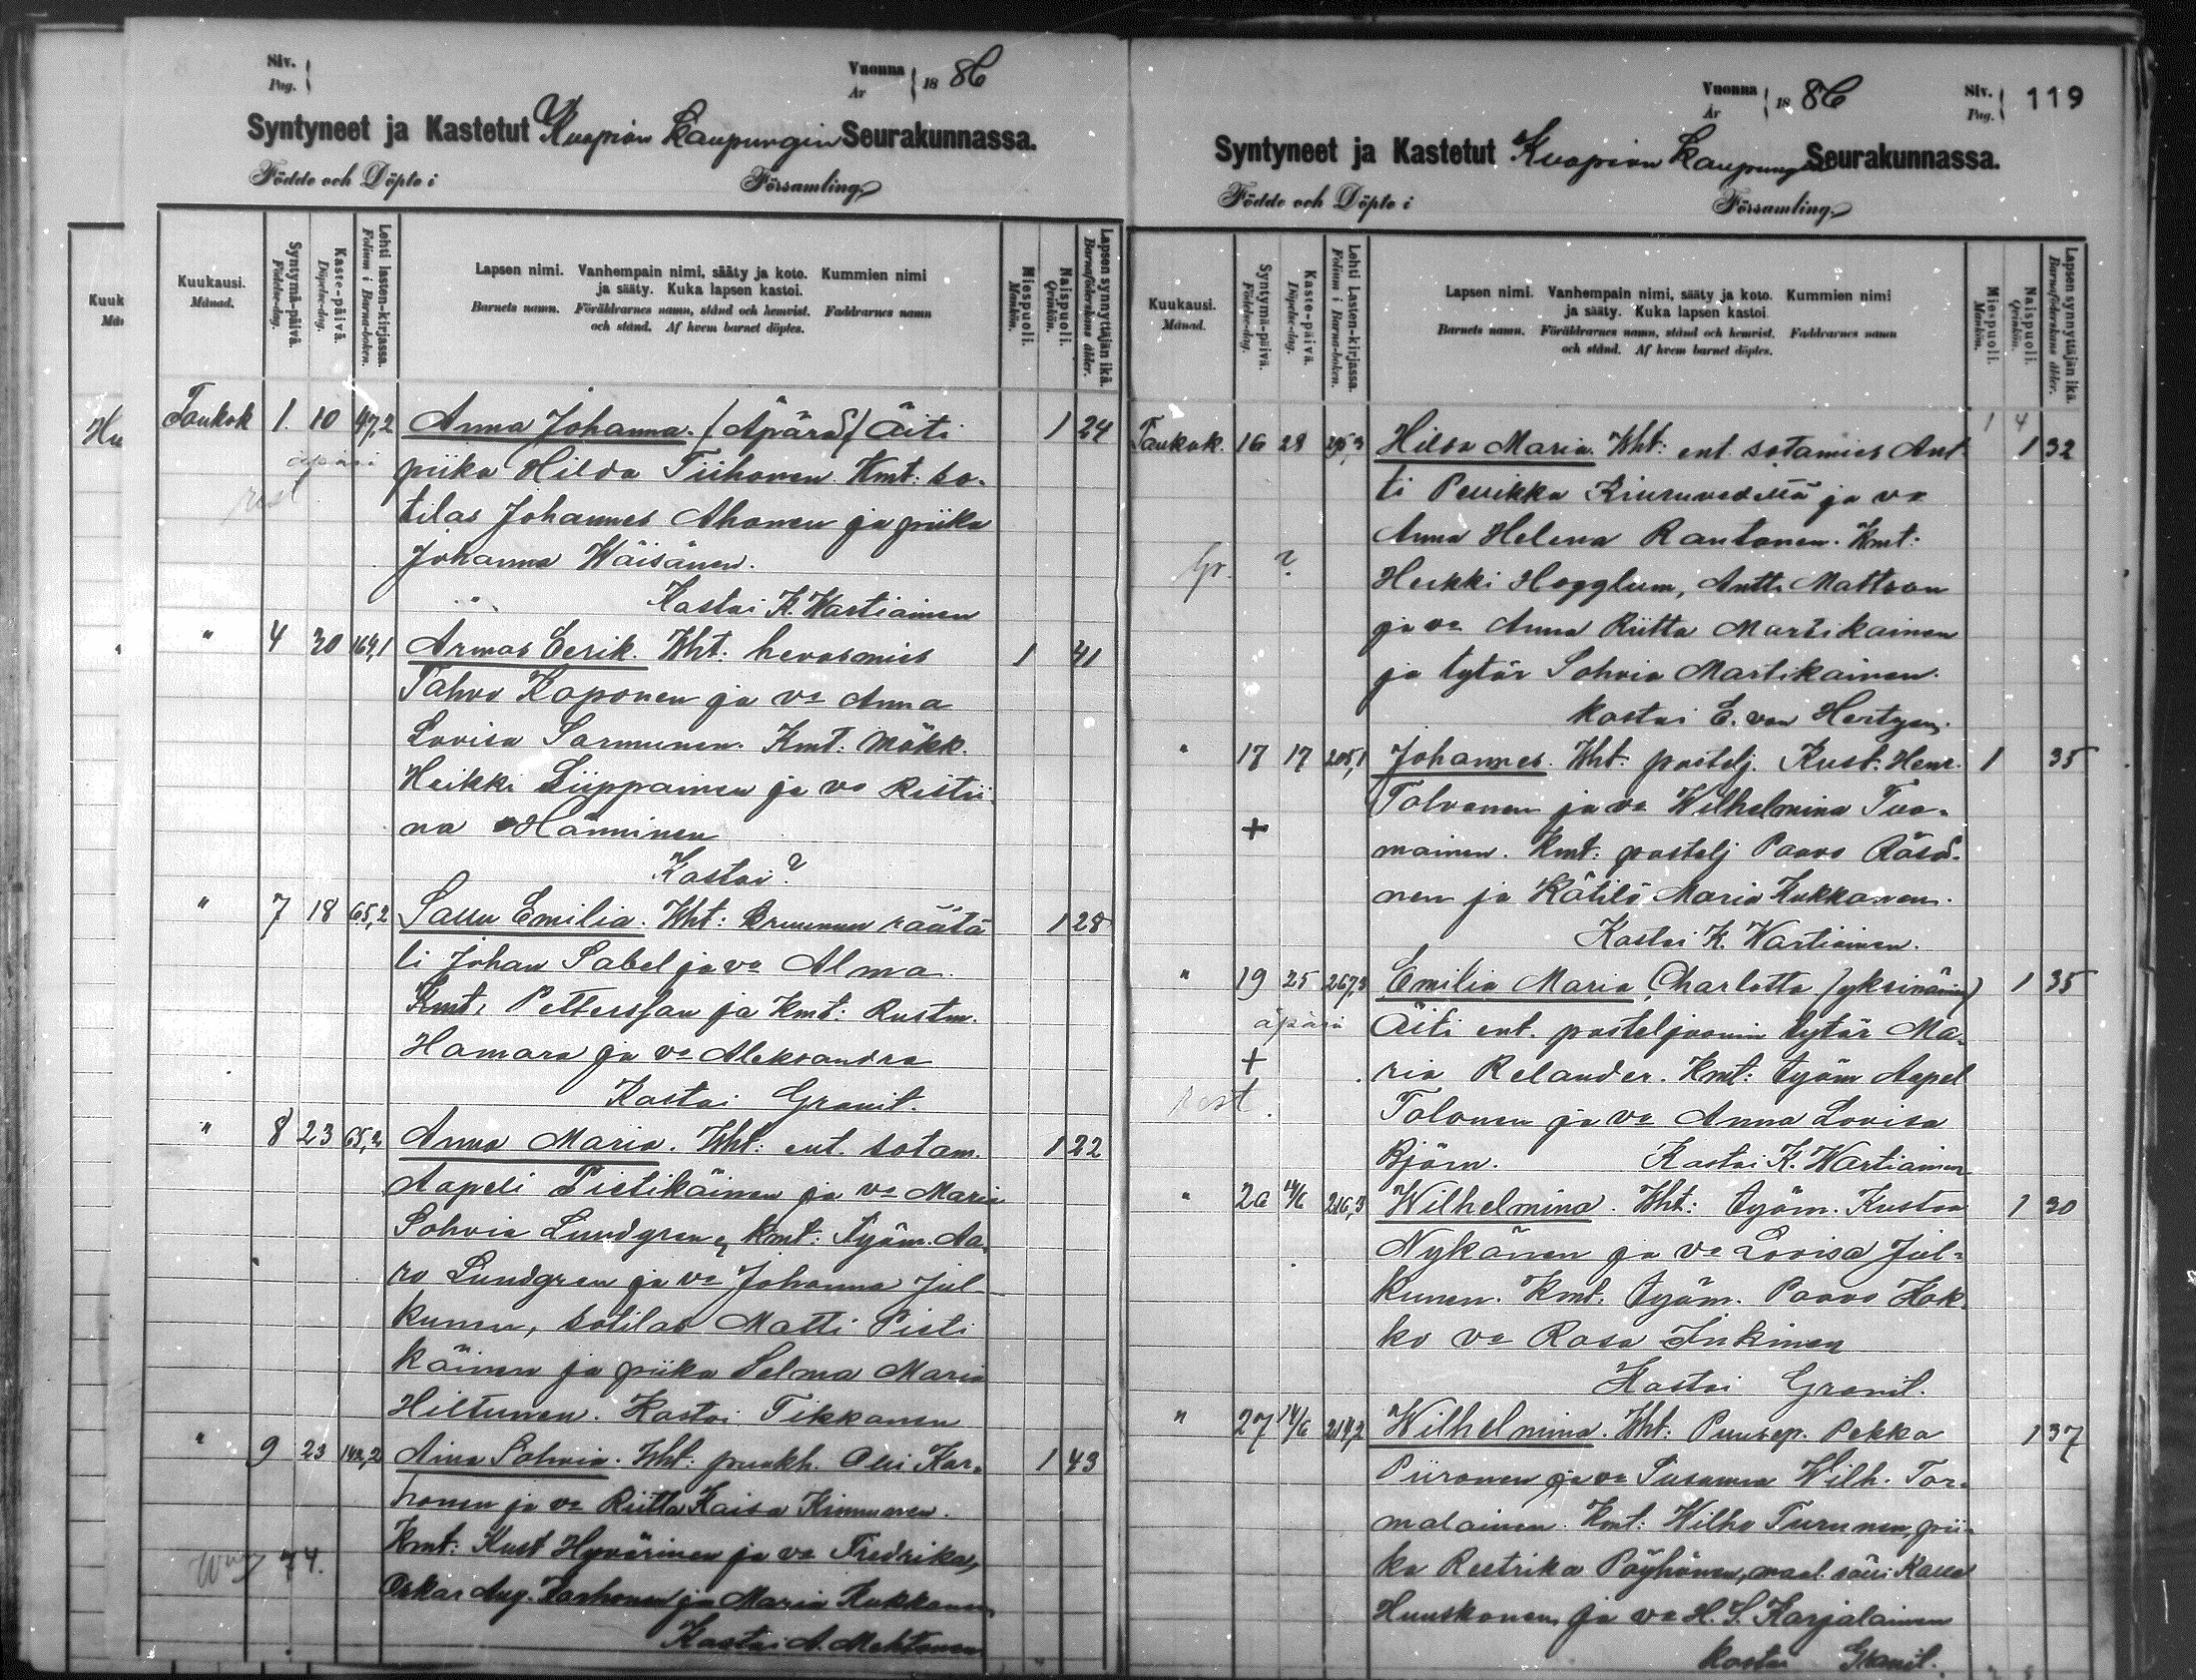 Siv.
Pag.
Vuonna
År
18 86
Syntyneet ja Kastetut Kuopion Kaupungin Seurakunnassa.
Födde och Döpte i Församling.
Kuukausi.
Månad.
Syntymä-päivä.
Födelse-dag.
Kaste-päivä.
Döpelse-dag.
Lehti lasten-kirjassa.
Folium i Barna-boken.
Lapsen nimi. Vanhempain nimi, sääty ja koto. Kummien nimi
ja sääty. Kuka lapsen kastoi.
Barnets namn. Föräldrarnes namn, stånd och hemvist. Faddrarnes namn
och stånd. Af hvem barnet döptes.
Miespuoli.
Mankön.
Naispuoli.
Qvinkön.
Lapsen synnyttäjän ikä.
Barnaföderskans ålder.
Kuuk
Hu
Toukok 1. 10 97,2 Anna Johanna. (Äpärä) Äiti 1 24
äpärä piika Hilda Tiihonen. Kmt: so-
tilas Johannes Ahonen ja piika
Johanna Wäisänen.
Kastoi K. Wartiainen
" 4 30 164,1 Armas Eerik. Wht: hevosmies 1 41
Tahvo Koponen ja vo Anna
Lovisa Sormunen. Kmt: Mökk.
Heikki Liippainen ja vo Ristii
na Hänninen
Kastoi?
" 7 18 65,2 Emilia. Wht: räätä 1 28
li Johan Sabel ja vo Alma
Kmt: Petterssan ja Kmt: Rustm.
Hamara ja vo Aleksandra
Kastoi Granit.
" 8 23 65,2 Anna Maria. Wht: ent. sotam. 1 22
Aapeli Pietikäinen ja vo Maria
Sohvia Lundgren, Kmt: Työm. Aa-
ro Lundgren ja vo Johanna Jul
kunen, sotilas Matti Pieti
käinen ja piika Selma Maria
Hiltunen. Kastoi Tikkanen
" 9 23 142,2 Aina Sohvia. Wht: Olli Kor- 1 43
honen ja vo Riitta Kaisa Kinnunen.
Kmt: Kust Hyvärinen ja vo Fredrika,
74. Oskar Aug. Korhonen ja Maria Kukkonen
Kastoi A. Mehtonen
Vuonna
År
18 86
Siv.
Pag.
119
Syntyneet ja Kastetut Kuopion Kaupungin Seurakunnassa.
Födde och Döpte i Församling.
Kuukausi.
Månad.
Syntymä-päivä.
Födelse-dag.
Kaste-päivä.
Döpelse-dag.
Lehti Lasten-kirjassa.
Folium i Barna-boken.
Lapsen nimi. Vanhempain nimi, sääty ja koto. Kummien nimi
ja sääty. Kuka lapsen kastoi.
Barnets namn. Föräldrarnes namn, stånd och hemvist. Faddrarnes namn
och stånd. Af hvem barnet döptes.
Miespuoli.
Mankön.
Naispuoli.
Qvinkön.
Lapsen synnyttäjän ikä.
Barnaföderskans ålder.
1 4
Toukok. 16 28 Hilda Maria. Wht: ent. sotamies Ant- 1 32
ti Pellikka Kiuruvedeltä ja vo
Anna Helena Rautanen. Kmt:
? Heikki Hogglum, Antti Mattson
ja vo Anna Riitta Martikainen
ja tytär Sohvia Martikainen.
kastoi E. von Hertzen.
" 17 17 205,1 Johannes. Wht: postelj. Kust. Henr. 1 35
Tolvanen ja vo Wilhelmina Tuo-
+ mainen. Kmt: postelj Paavo Räsä-
nen ja Kätilö Maria Kukkonen.
Kastoi K. Wartiainen.
" 19 25 267,3 Emilia Maria Charlotta (yksinäinen) 1 35
äpärä Äiti ent. posteljoonin tytär Ma-
+ ria Relander. Kmt: työm Aapel
Tolonen ja vo Anna Lovisa
Björn. Kastoi K. Wartiainen
" 20 216,3 Wilhelmina. Wht: työm. Kustaa 1 30
Nykänen ja vo Lovisa Jul-
kunen. Kmt: työm. Paavo Kok-
ko vo Rosa Inkinen
Kastoi Granit.
" 27 14/6 214,2 Wilhelmina. Wht: Puusep. Pekka 1 37
Piironen ja vo Susanna Wilh. Tor-
malainen. Kmt: Wilho Turunen, pii-
ka Reetrika Pöyhönen, maal. sälli Kalle
Huuskonen ja vo H. S. Karjalainen
kastoi Granit.